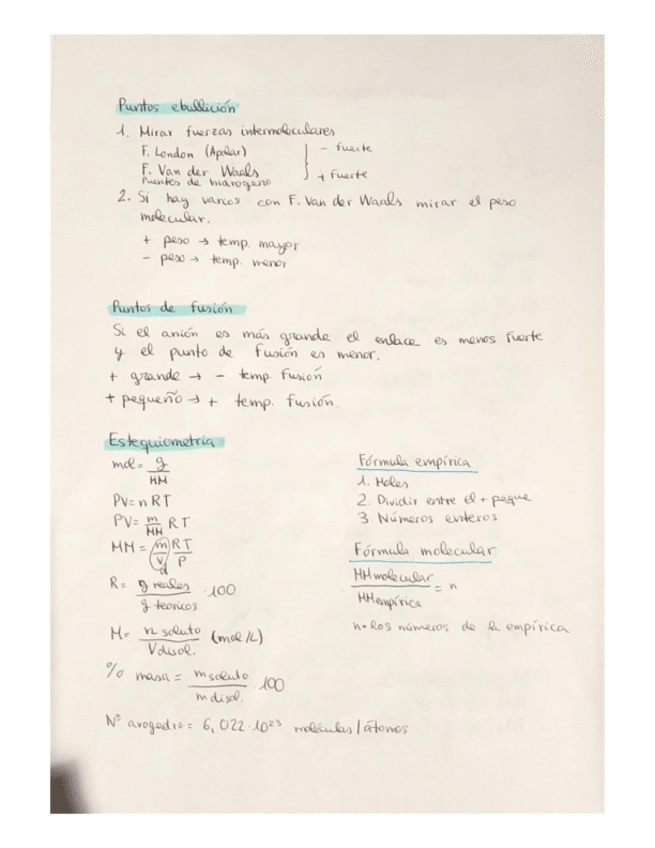 Puntos ebullición
1. Mirar fuerzas intermoleculares
F. London (Apolar) - fuerte
F. Van der Waals
Puentes de hidrogeno + fuerte
2. Si hay varios con F. Van der Waals mirar el peso
molecular.
+ peso → temp. mayor
- peso → temp. menor
Puntos de fusión
Si el anión es más grande el enlace es menos fuerte
y el punto de fusión es menor.
+ grande → - temp. fusión
+ pequeño → + temp. fusión.
Estequiometria
mol = g / MM
PV = n RT
PV = m / MM RT
MM = m / V RT / P
d
R = g reales / g teoricos · 100
M = n soluto / V disol. (mol/L)
% masa = m soluto / m disol. · 100
Nº avogadro = 6,022·10²³ moléculas/átomos
Fórmula empírica
1. Moles
2. Dividir entre el + peque
3. Números enteros
Fórmula molecular
MM molecular / MM empírica = n
n · los números de la empírica